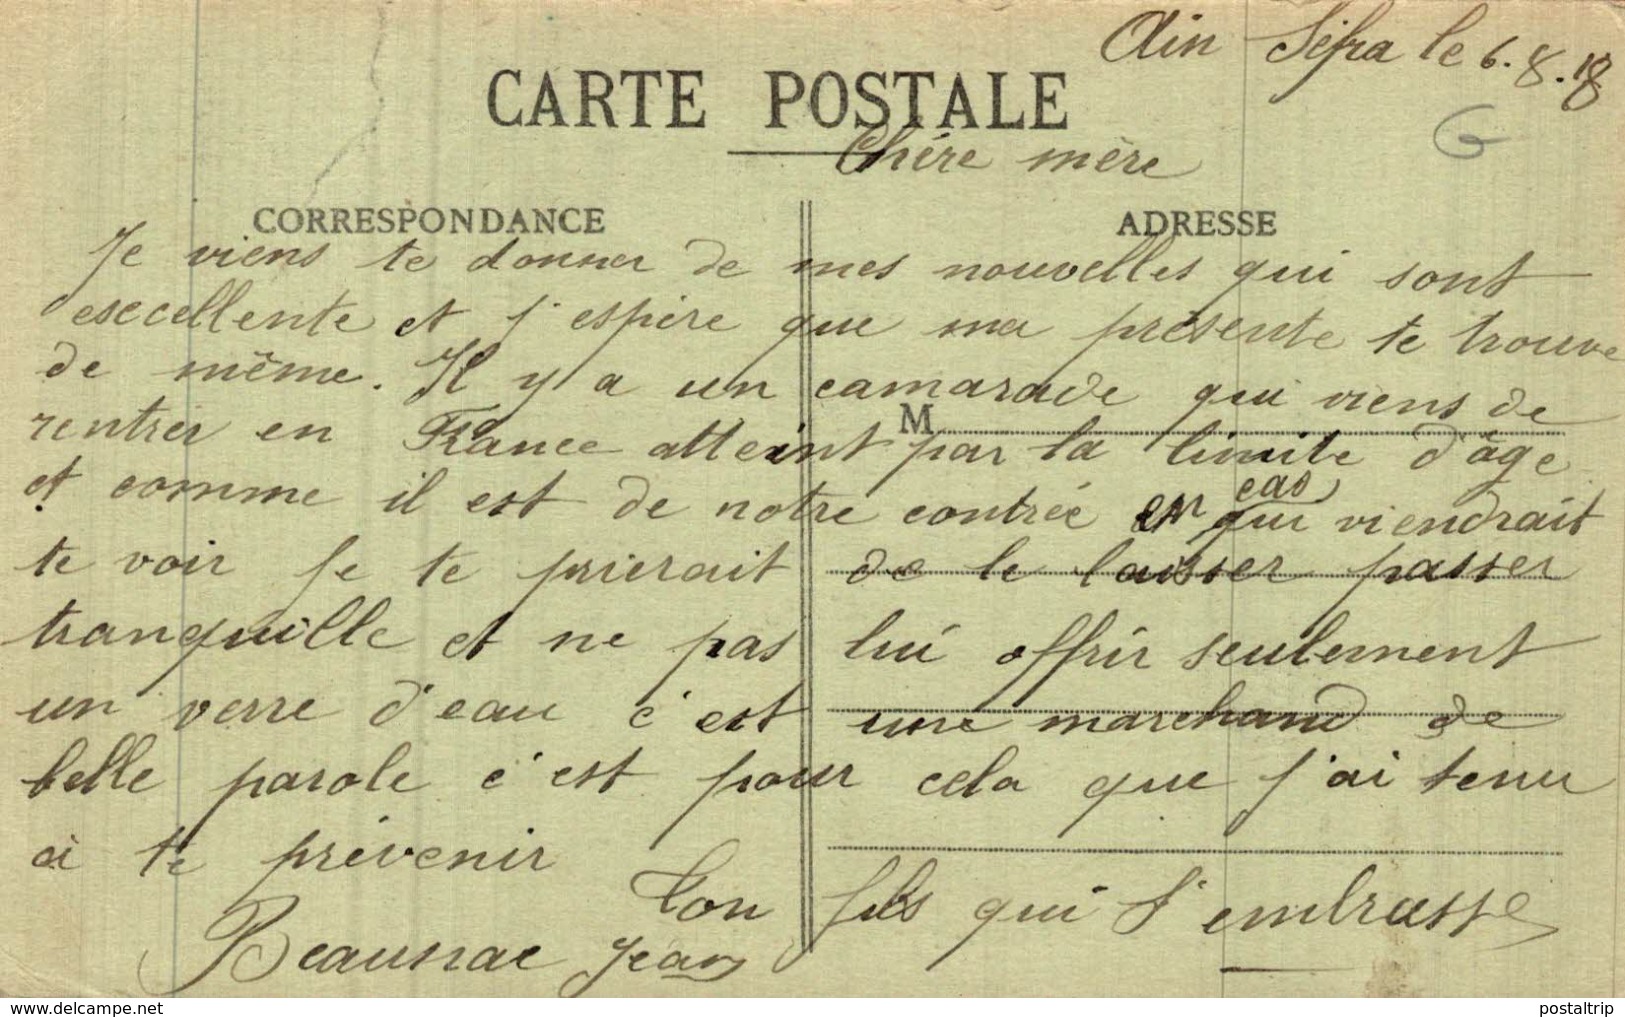 Ain Sefra le 6.8.18
CARTE POSTALE
Chère mère
CORRESPONDANCE ADRESSE
Je viens te donner de mes nouvelles qui sont
esecellente et j'espère que ma présente te trouve
de même. Il y a un camarade qui viens de
M
rentrer en France atteint par la limite d'âge
et comme il est de notre contrée en cas qui viendrait
te voir je te prierait de le laisser passer
tranquille et ne pas lui offrir seulement
un verre d'eau c'est une marchand de
belle parole c'est pour cela que j'ai tenu
à te prévenir
Ton fils qui t'embrasse
Jean
delcampe.net
postaltrip